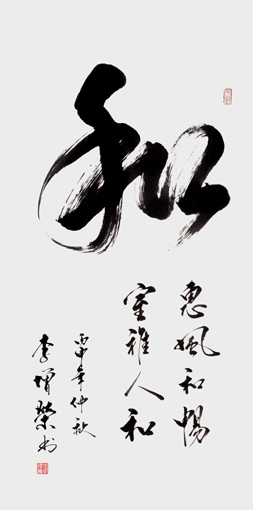 和
惠風和暢
室雅人和
丙申年仲秋
李增榮书